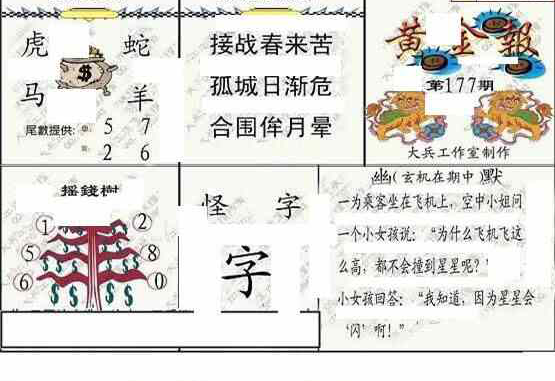 虎 蛇
马 羊
尾數提供: 5 7
2 6
接战春来苦
孤城日渐危
合围侔月晕
黄金報
第177期
大兵工作室制作
摇錢樹
1 2
5 8
6 0
怪 字
字
幽(玄机在期中 默
一为乘客坐在飞机上，空中小姐问
一个小女孩说：“为什么飞机飞这
么高，都不会撞到星星呢？’
小女孩回答：“我知道，因为星星会
‘闪’啊！”